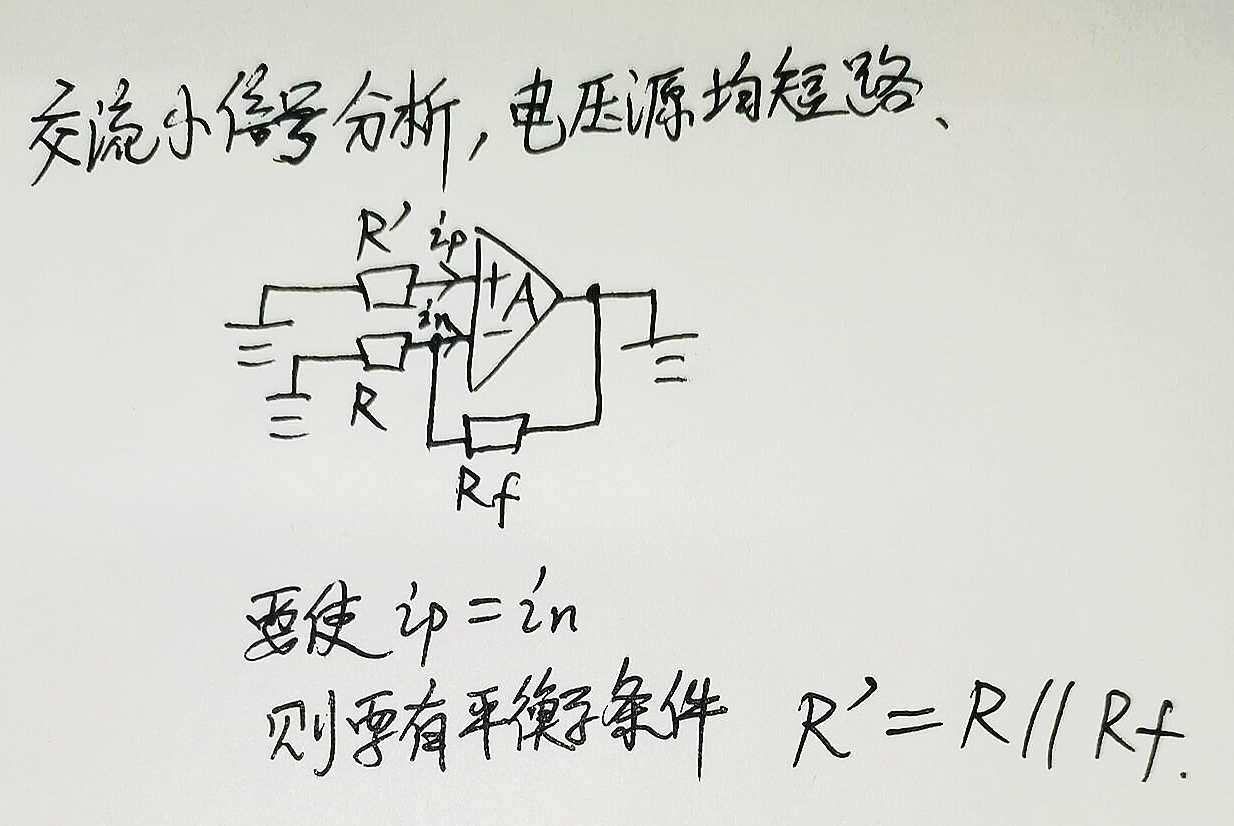 交流小信号分析,电压源均短路、
R' ip
+ A
in
-
R
Rf
要使 ip=in
则要有平衡条件 R'=R//Rf.